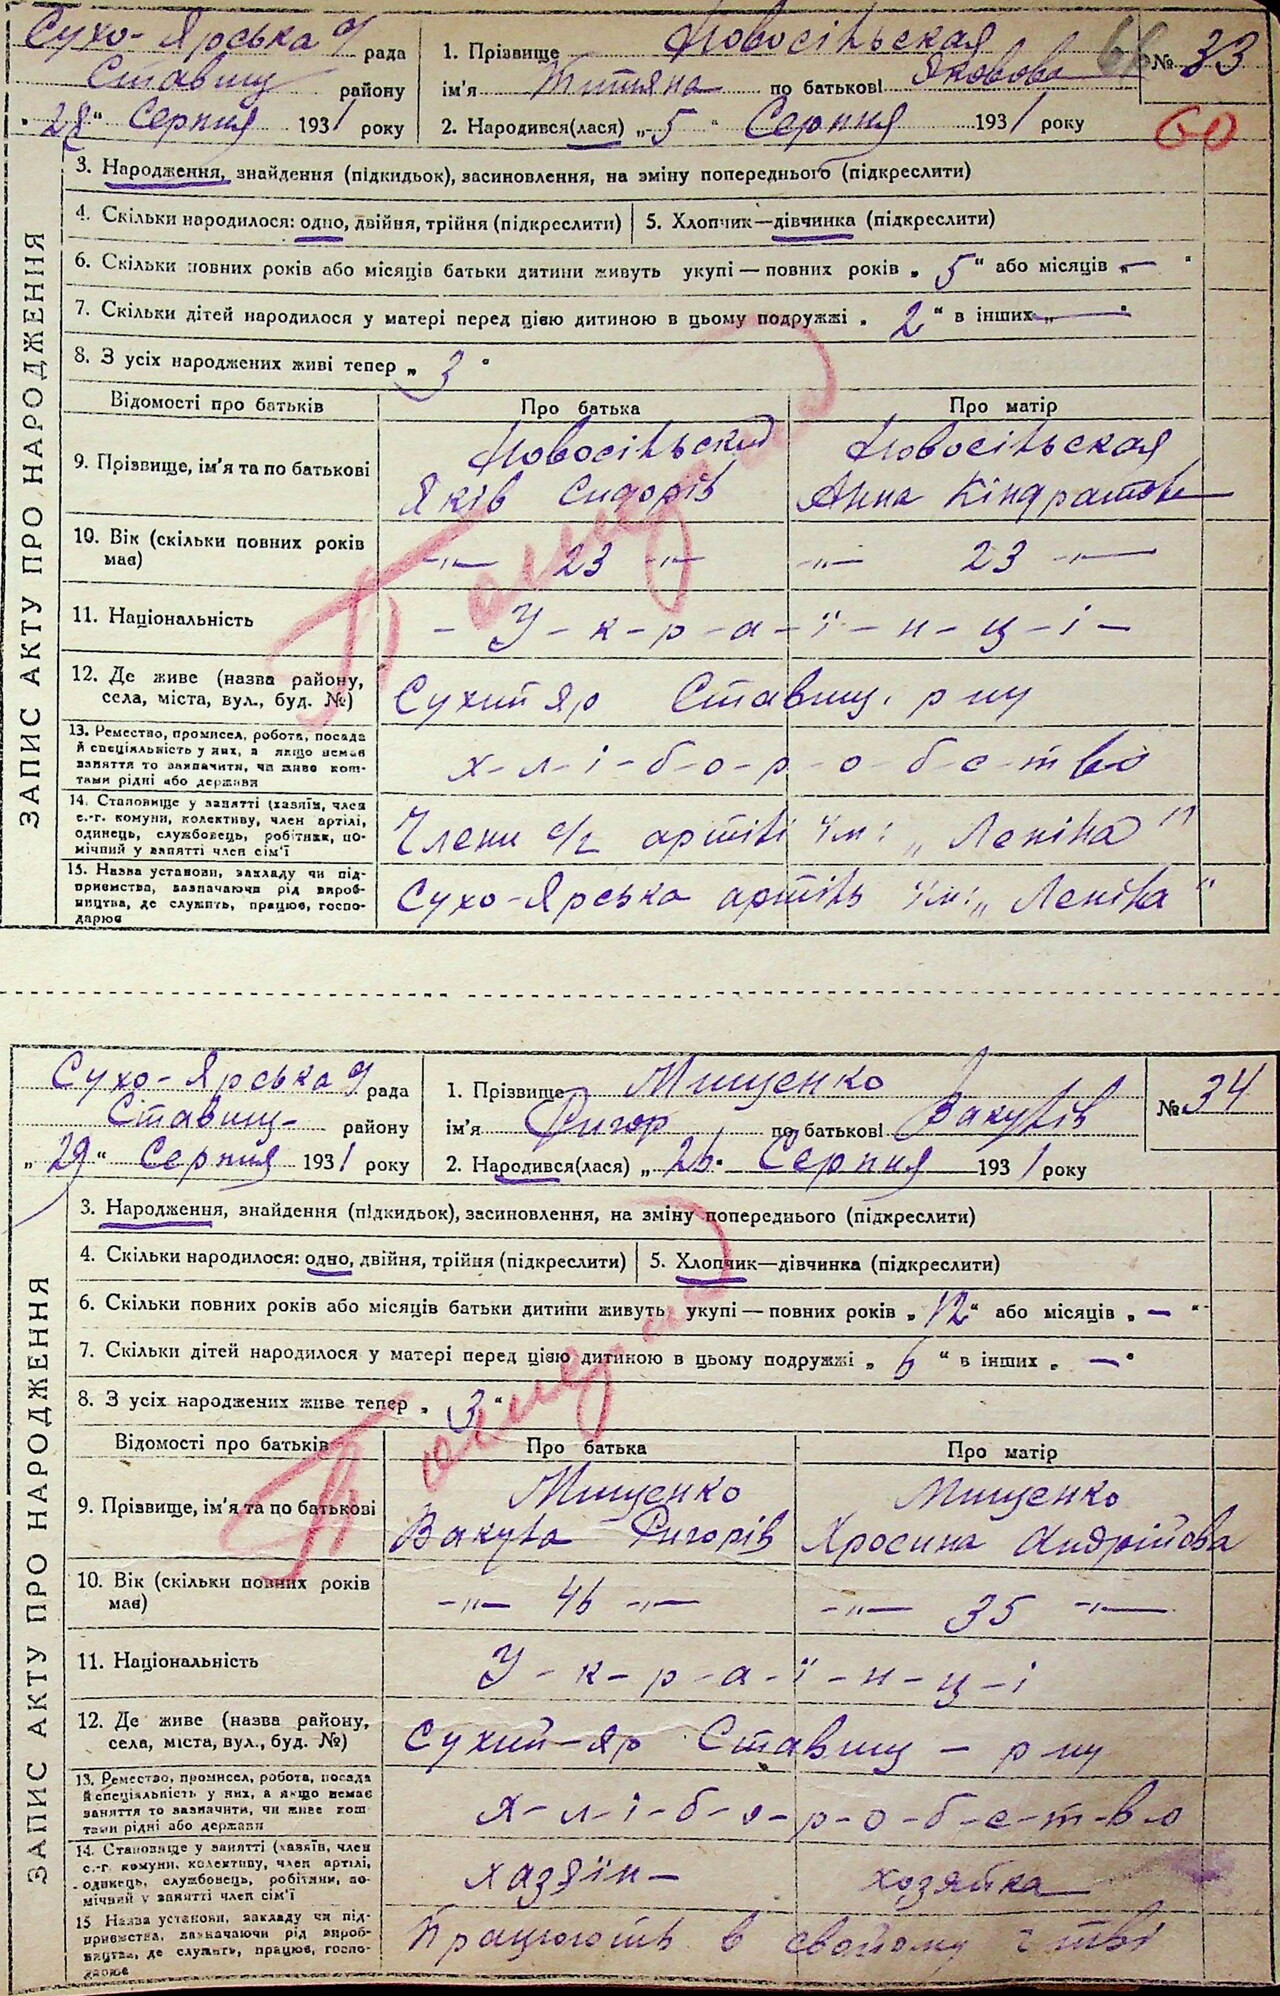 Сухо-Ярська с/ рада
Ставищ району
"28" Серпня 1931 року
1. Прізвище Новосільская
ім'я Тетяна по батькові Яковова
2. Народився(лася) „5" Серпня 1931 року
66
№ 33
60
ЗАПИС АКТУ ПРО НАРОДЖЕННЯ
3. Народження, знайдення (підкидьок), засиновлення, на зміну попереднього (підкреслити)
4. Скільки народилося: одно, двійня, трійня (підкреслити) 5. Хлопчик—дівчинка (підкреслити)
6. Скільки повних років або місяців батьки дитини живуть укупі — повних років „5" або місяців „—"
7. Скільки дітей народилося у матері перед цією дитиною в цьому подружжі „2" в інших „—"
8. З усіх народжених живі тепер „3"
Відомості про батьків Про батька Про матір
9. Прізвище, ім'я та по батькові
Новосільский
Яків Сидорів
Новосільская
Анна Кіндратов
10. Вік (скільки повних років має) -"- 23 -"- -"- 23 -"-
11. Національність - У-к-р-а-ї-н-ц-і-
12. Де живе (назва району,
села, міста, вул., буд. №) Сухий яр Ставищ. р-ну
13. Ремество, промисел, робота, посада
й спеціяльність у них, а якщо немає
заняття то зазначити, чи живе кош-
тами рідні або держави
х-л-і-б-о-р-о-б-с-т-во
14. Становище у занятті (хазяїн, член
с.-г. комуни, колективу, член артілі,
одинець, службовець, робітник, по-
мічний у занятті член сім'ї
Члени с/г артілі ім: „Леніна"
15. Назва установи, закладу чи під-
приємства, зазначаючи рід вироб-
ництва, де служить, працює, госпо-
дарює
Сухо-Ярська артіль ім: „Леніна"
Сухо-Ярська с/ рада
Ставищ- району
„29" Серпня 1931 року
1. Прізвище Мищенко
ім'я Григор по батькові Вакулів
2. Народився(лася) „26" Серпня 1931 року
№ 34
ЗАПИС АКТУ ПРО НАРОДЖЕННЯ
3. Народження, знайдення (підкидьок), засиновлення, на зміну попереднього (підкреслити)
4. Скільки народилося: одно, двійня, трійня (підкреслити) 5. Хлопчик—дівчинка (підкреслити)
6. Скільки повних років або місяців батьки дитини живуть укупі — повних років „12" або місяців „—"
7. Скільки дітей народилося у матері перед цією дитиною в цьому подружжі „6" в інших „—"
8. З усіх народжених живе тепер „3"
Відомості про батьків Про батька Про матір
9. Прізвище, ім'я та по батькові
Мищенко
Вакула Григорів
Мищенко
Хросина Андрійова
10. Вік (скільки повних років має) -"- 46 -"- -"- 35 -"-
11. Національність У-к-р-а-ї-н-ц-і
12. Де живе (назва району,
села, міста, вул., буд. №) Сухий-яр Ставищ - р-ну
13. Ремество, промисел, робота, посада
й спеціяльність у них, а якщо немає
заняття то зазначити, чи живе кош-
тами рідні або держави
х-л-і-б-о-р-о-б-с-т-в-о
14. Становище у занятті (хазяїн, член
с.-г. комуни, колективу, член артілі,
одинець, службовець, робітник, по-
мічний у занятті член сім'ї
хазяїн- хозяйка
15 Назва установи, закладу чи під-
приємства, зазначаючи рід вироб-
ництва, де служить, працює, госпо-
дарює
Працюють в своїому г-тві